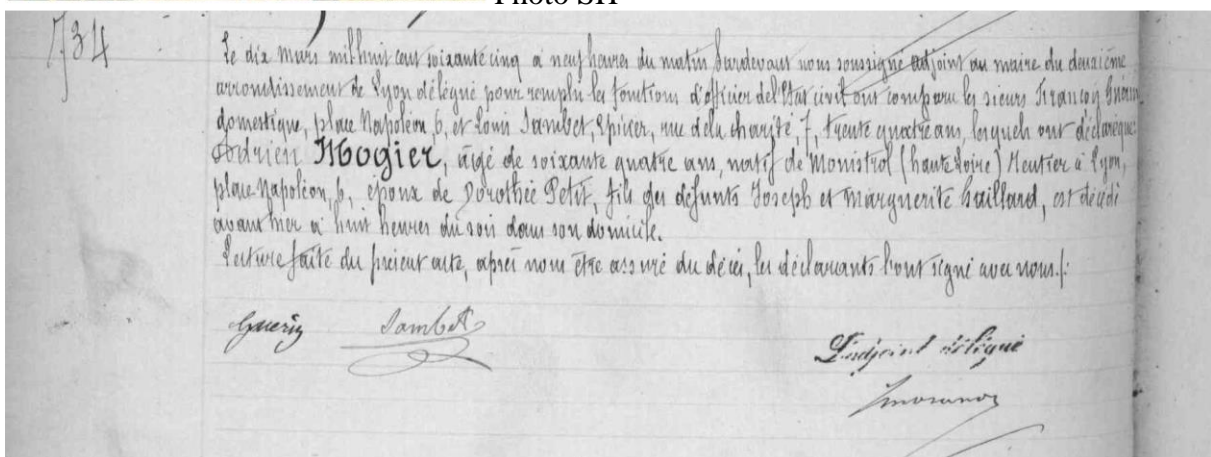 Photo SH
734
Le dix mars mil huit cent soixante cinq à neuf heures du matin Pardevant nous soussigné adjoint au maire du deuxième
arrondissement de Lyon délégué pour remplir les fonctions d'officier de l'Etat civil ont comparu les sieurs François Guérin
domestique, place Napoléon, 6, et Louis Jambet, Epicier, rue de la charité, 7, trente quatre ans, lesquels ont déclaré que
Adrien Mogier, âgé de soixante quatre ans, natif de Monistrol (haute Loire) Rentier à Lyon,
place Napoléon, 6, époux de Dorothée Petit, fils des défunts Joseph et Marguerite Gaillard, est décédé
avant hier à huit heures du soir dans son domicile.
Lecture faite du présent acte, après nous être assuré du décès, les déclarants l'ont signé avec nous./:
Guerin Jambet
L'adjoint délégué